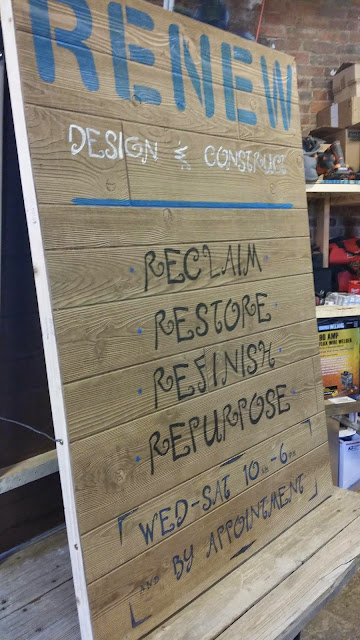 RENEW
DESIGN & CONSTRUCT
RECLAIM
RESTORE
REFINISH
REPURPOSE
WED-SAT 10AM-6PM
AND BY APPOINTMENT
90 AMP
FLUX WIRE WELDER